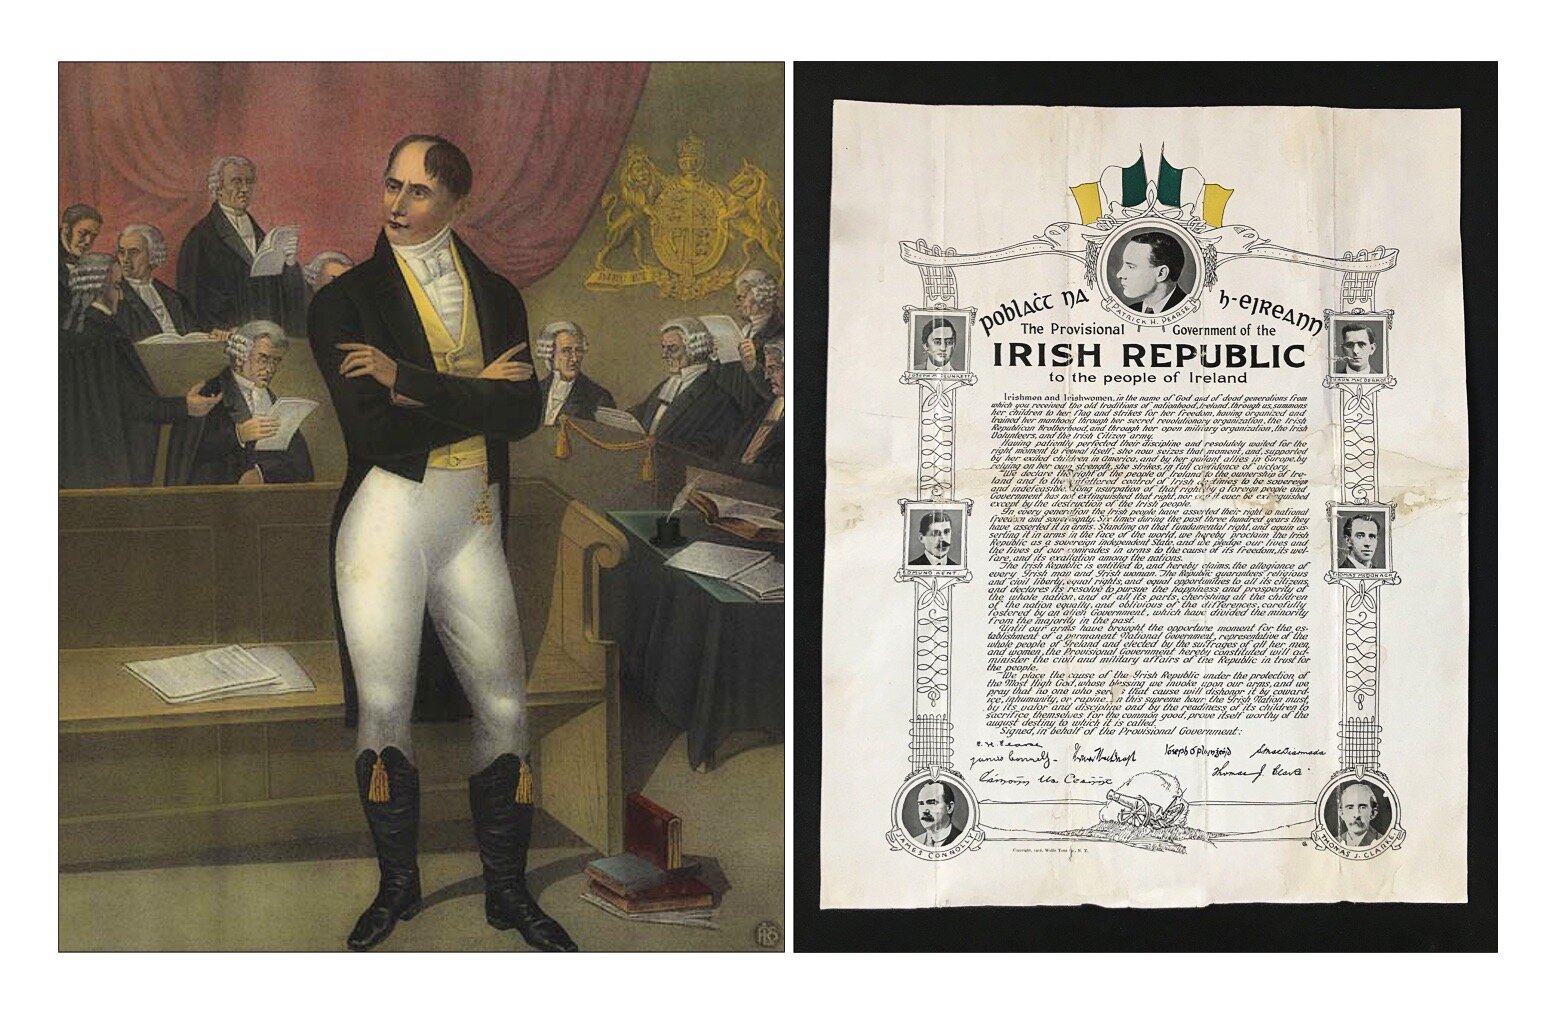 PATRICK H. PEARSE
poblacht na h-eireann
The Provisional Government of the
IRISH REPUBLIC
to the people of Ireland
JOSEPH M. PLUNKETT
Irishmen and Irishwomen, in the name of God and of dead generations from
which you received the old traditions of nationhood, Ireland, through us, summons
her children to her flag and strikes for her freedom, having organized and
trained her manhood through her secret revolutionary organization, the Irish
Republican Brotherhood, and through her open military organization, the Irish
Volunteers, and the Irish Citizen army.
Having patiently perfected their discipline and resolutely waited for the
right moment to reveal itself, she now seizes that moment, and, supported
by her exiled children in America, and by her gallant allies in Europe, by
relying on her own strength, she strikes, in full confidence of victory.
We declare the right of the people of Ireland to the ownership of Ire-
land and to the unfettered control of Irish destinies to be sovereign
and indefeasible. Long usurpation of that right by a foreign people and
Government has not extinguished that right, nor can it ever be extinguished
except by the destruction of the Irish people.
In every generation the Irish people have asserted their right to national
freedom and sovereignty. Six times during the past three hundred years they
have asserted it in arms. Standing on that fundamental right, and again as-
serting it in arms in the face of the world, we hereby proclaim the Irish
Republic as a sovereign independent State, and we pledge our lives and
the lives of our comrades in arms to the cause of its freedom, its wel-
fare, and its exaltation among the nations.
The Irish Republic is entitled to, and hereby claims, the allegiance of
every Irish man and Irish woman. The Republic guarantees religious
and civil liberty, equal rights, and equal opportunities to all its citizens,
and declares its resolve to pursue the happiness and prosperity of
the whole nation, and of all its parts, cherishing all the children
of the nation equally, and oblivious of the differences, carefully
fostered by an alien Government, which have divided the minority
from the majority in the past.
Until our arms have brought the opportune moment for the es-
tablishment of a permanent National Government, representative of the
whole people of Ireland and elected by the suffrages of all her men,
and women, the Provisional Government hereby constituted will ad-
minister the civil and military affairs of the Republic in trust for
the people.
We place the cause of the Irish Republic under the protection of
the Most High God, whose blessing we invoke upon our arms, and we
pray that no one who serves that cause will dishonor it by coward-
ice, inhumanity, or rapine. In this supreme hour the Irish Nation must,
by its valor and discipline and by the readiness of its children to
sacrifice themselves for the common good, prove itself worthy of the
august destiny to which it is called.
Signed, in behalf of the Provisional Government:
EDMUND KENT
P. H. Pearse
S. MacDiarmada
James Connolly
Thomas J. Clarke
JAMES CONNOLLY
THOMAS J. CLARKE